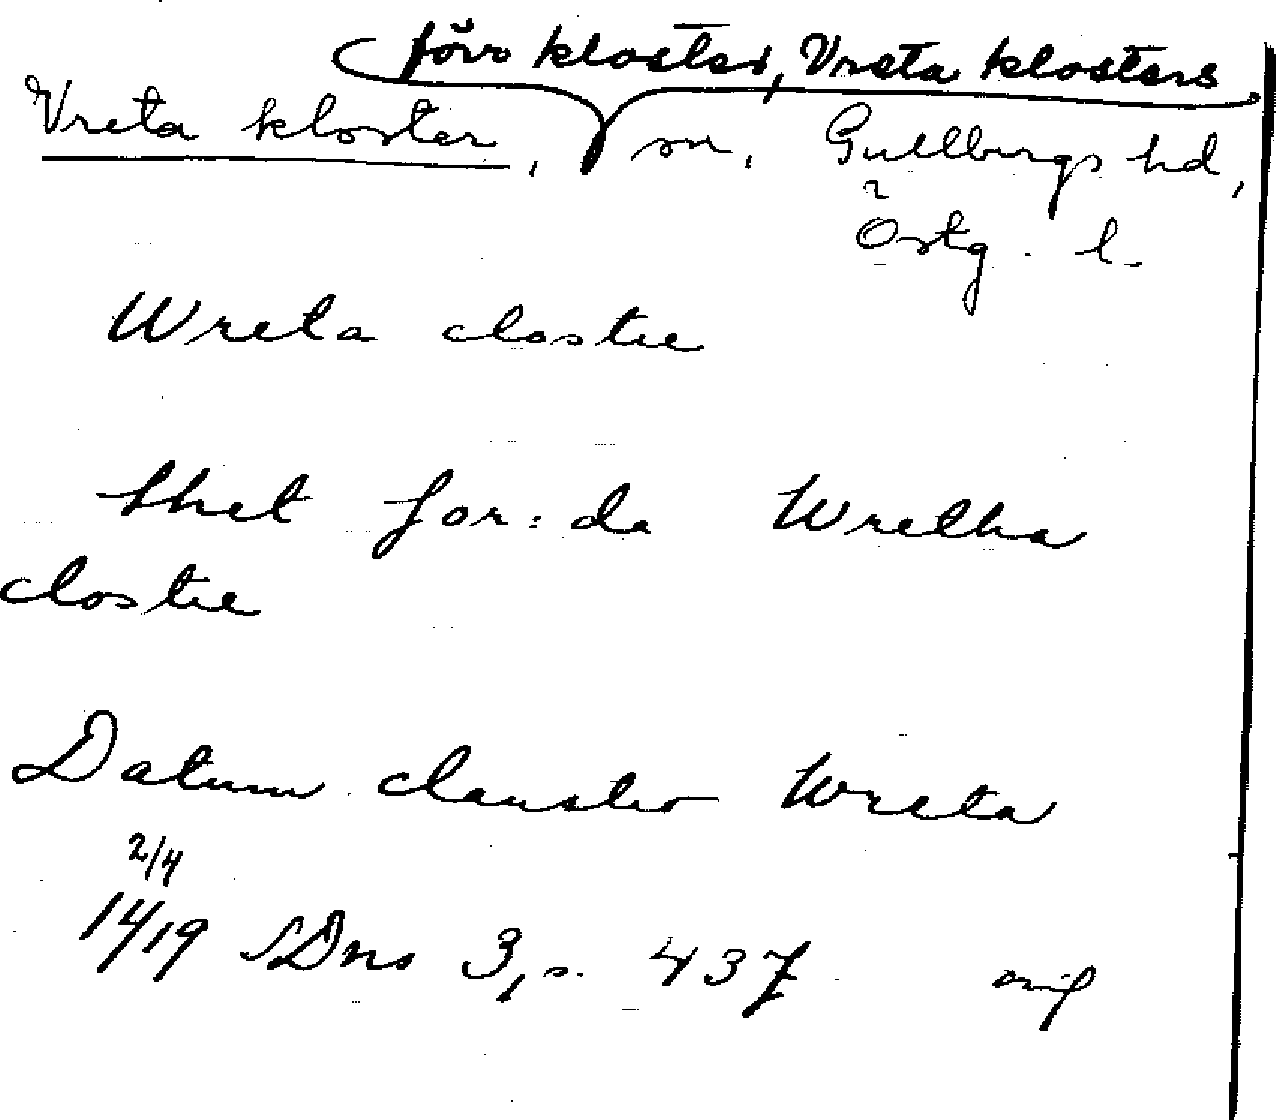 förv kloster, Vreta klosters
Vreta kloster, sn, Gullbergs hd,
Östg. l.
Wreta clostre
thet for:da Wretha
clostre
Datum claustro Wreta
2/4
1419 SDns 3, s. 437 orig